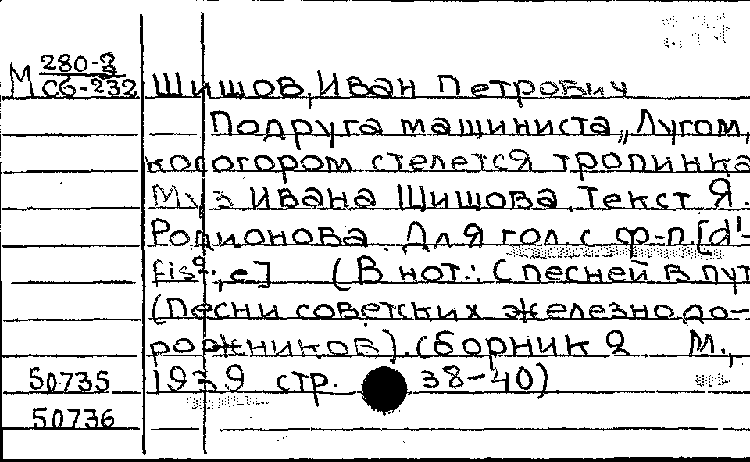 М 280-3 Шишов, Иван Петрович
Сб-232
Подруга машиниста „Лугом,
косогором стелется тропинка
Муз Ивана Шишова. Текст Я.
Родионова. Для гол. с ф-п. [d¹-
fis²; e] (В нот.: С песней в пут
(Песни советских железнодо-
рожников). Сборник 2 М.,
50735 1939 стр. 38-40)
50736